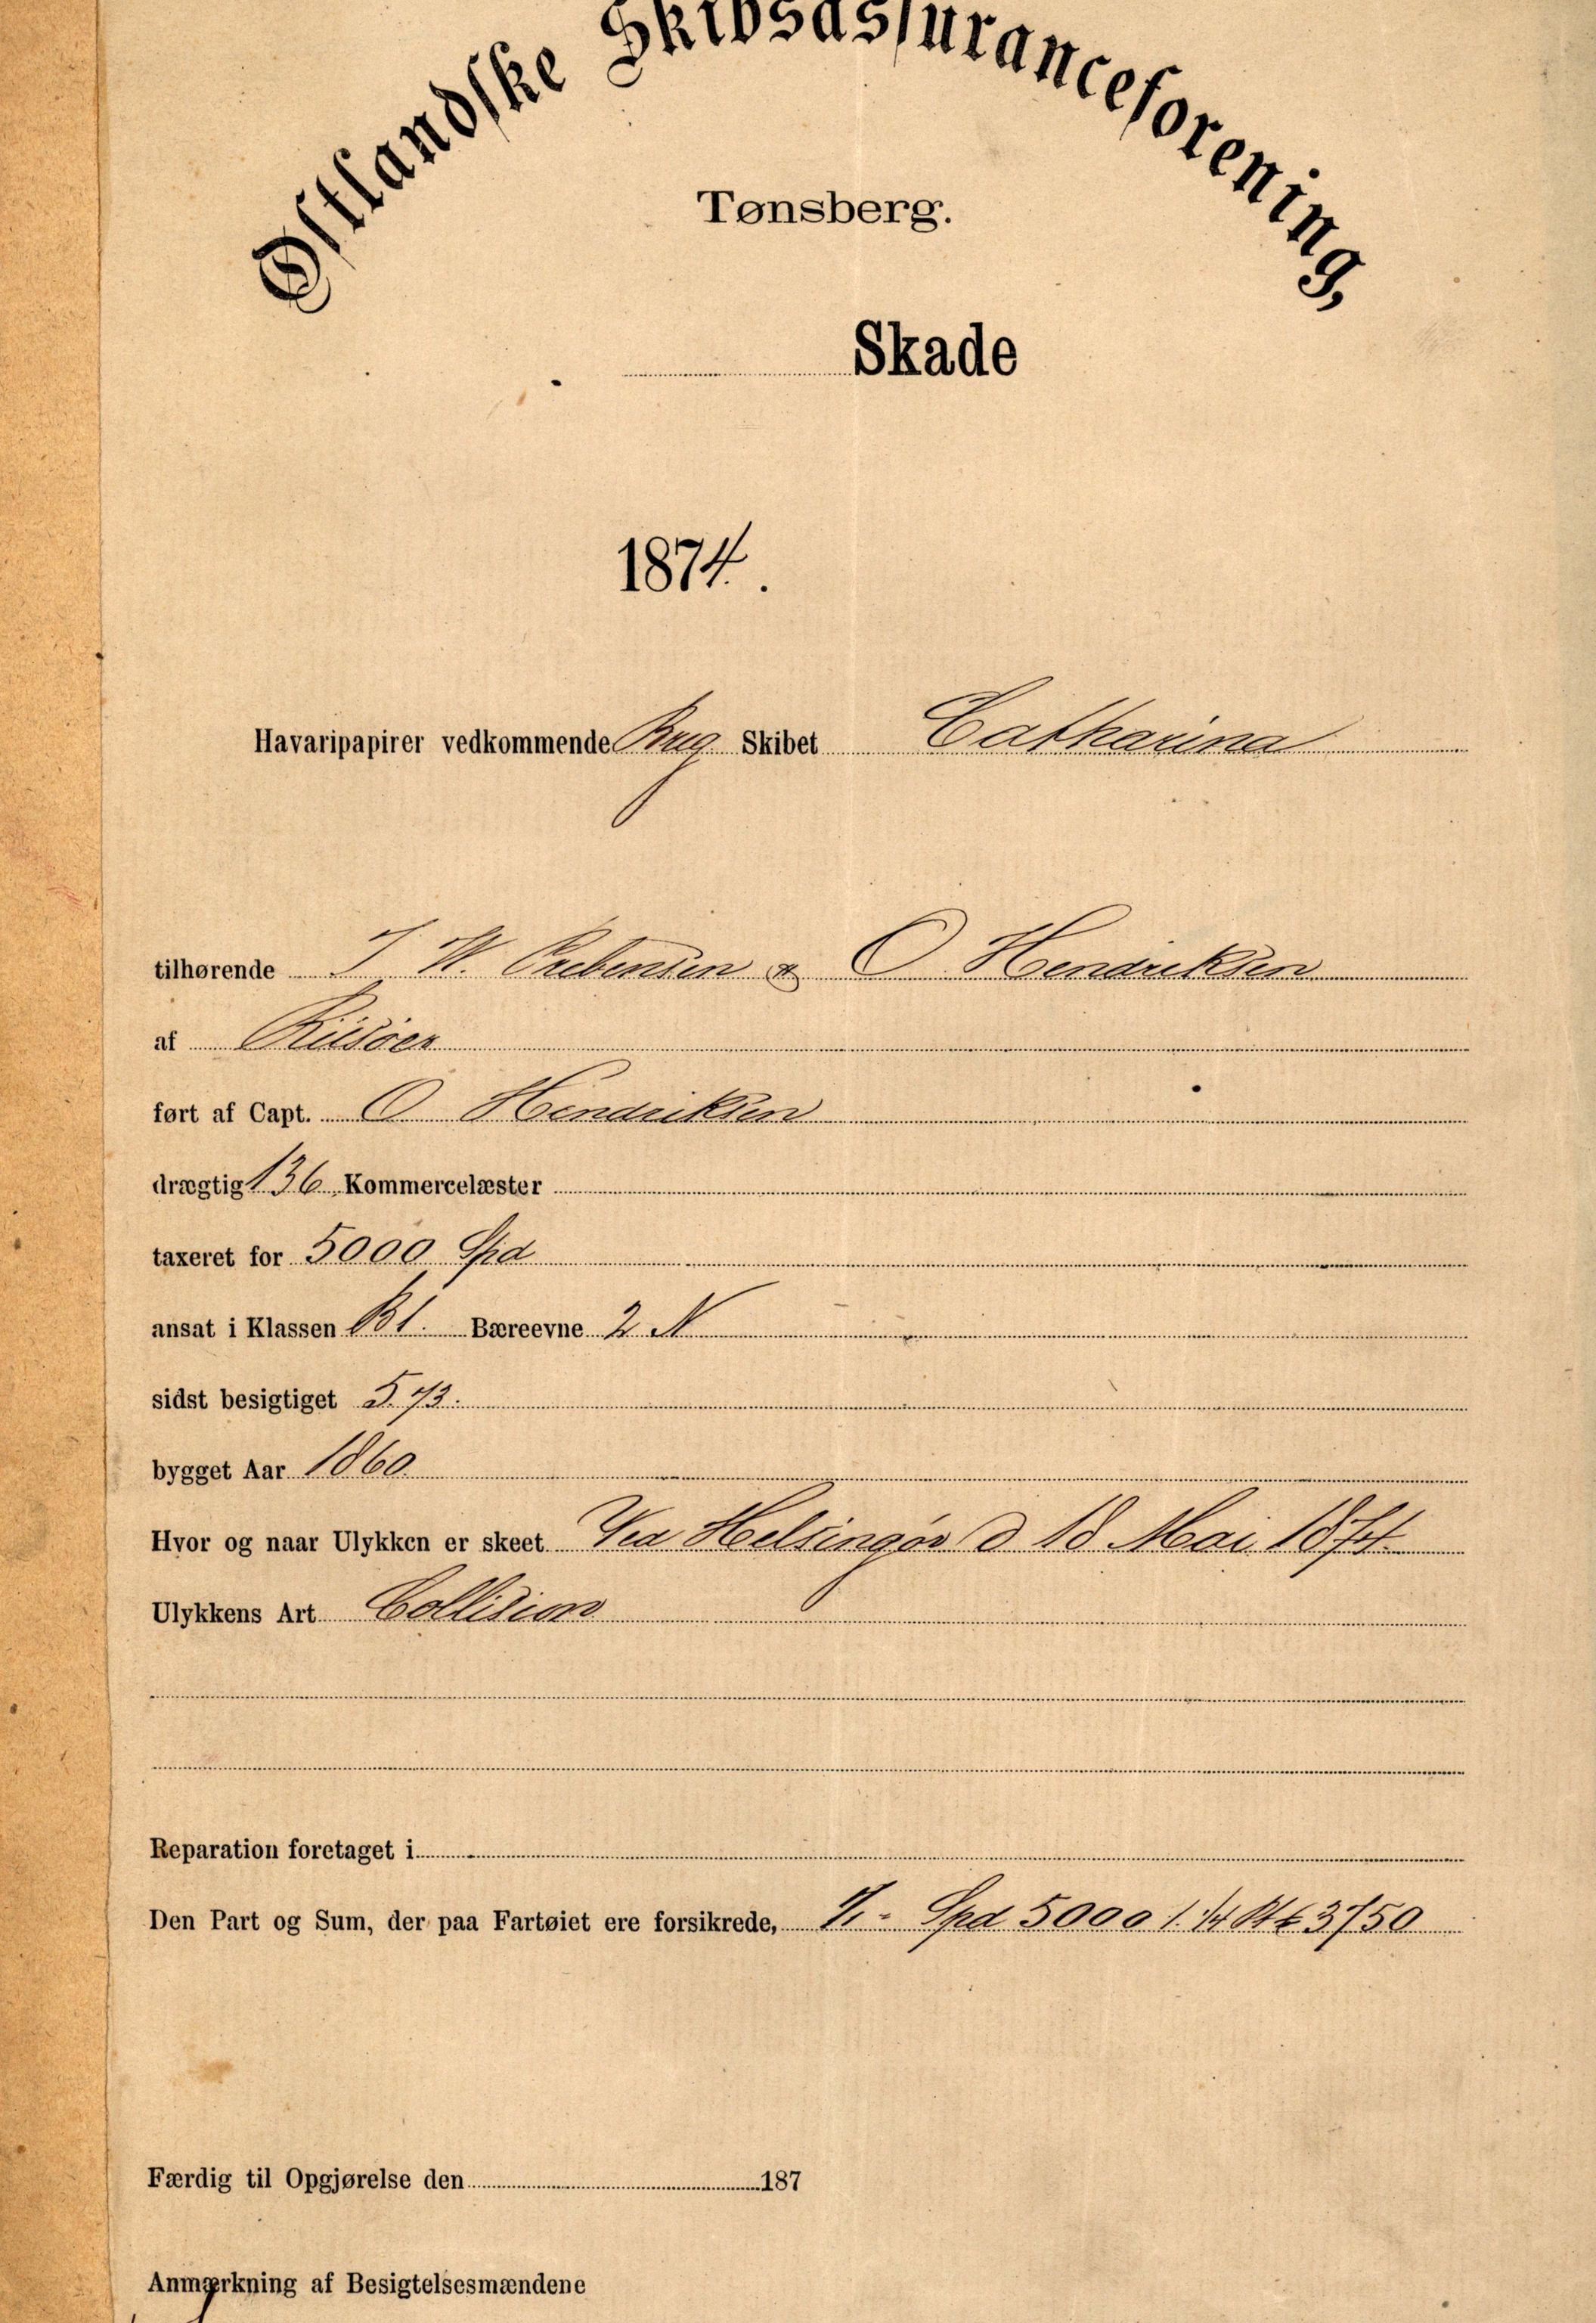 Østlandske Skibsassuranceforening,
Tønsberg.
Skade
1874.
Havaripapirer vedkommende Brig Skibet Catharina
tilhørende I W. Prebensen & O Hendriksen
af Riisöer
ført af Capt. O Hendriksen
drægtig 136 Kommercelæster
taxeret for 5000 Spd
ansat i Klassen B1. Bæreevne 2 N
sidst besigtiget 5.73.
bygget Aar 1860.
Hvor og naar Ulykken er skeet Ved Helsingør d 18 Mai 1874.
Ulykkens Art Collision
Reparation foretaget i
Den Part og Sum, der paa Fartøiet ere forsikrede, 1/1 - Spd 5000 1/4 3750
Færdig til Opgjørelse den 187
Anmærkning af Besigtelsesmændene